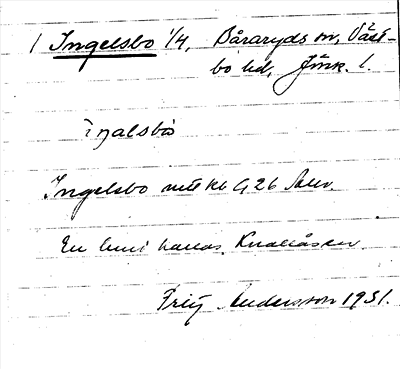 1 Ingelsbo 1/4, Båraryds sn, Väst-
bo hd, Jönk. l.
iŋalsbo
Ingelsbo mtl RR G 26 Salu.
En lund kallas Knallåsen.
Frig Andersson 1931.